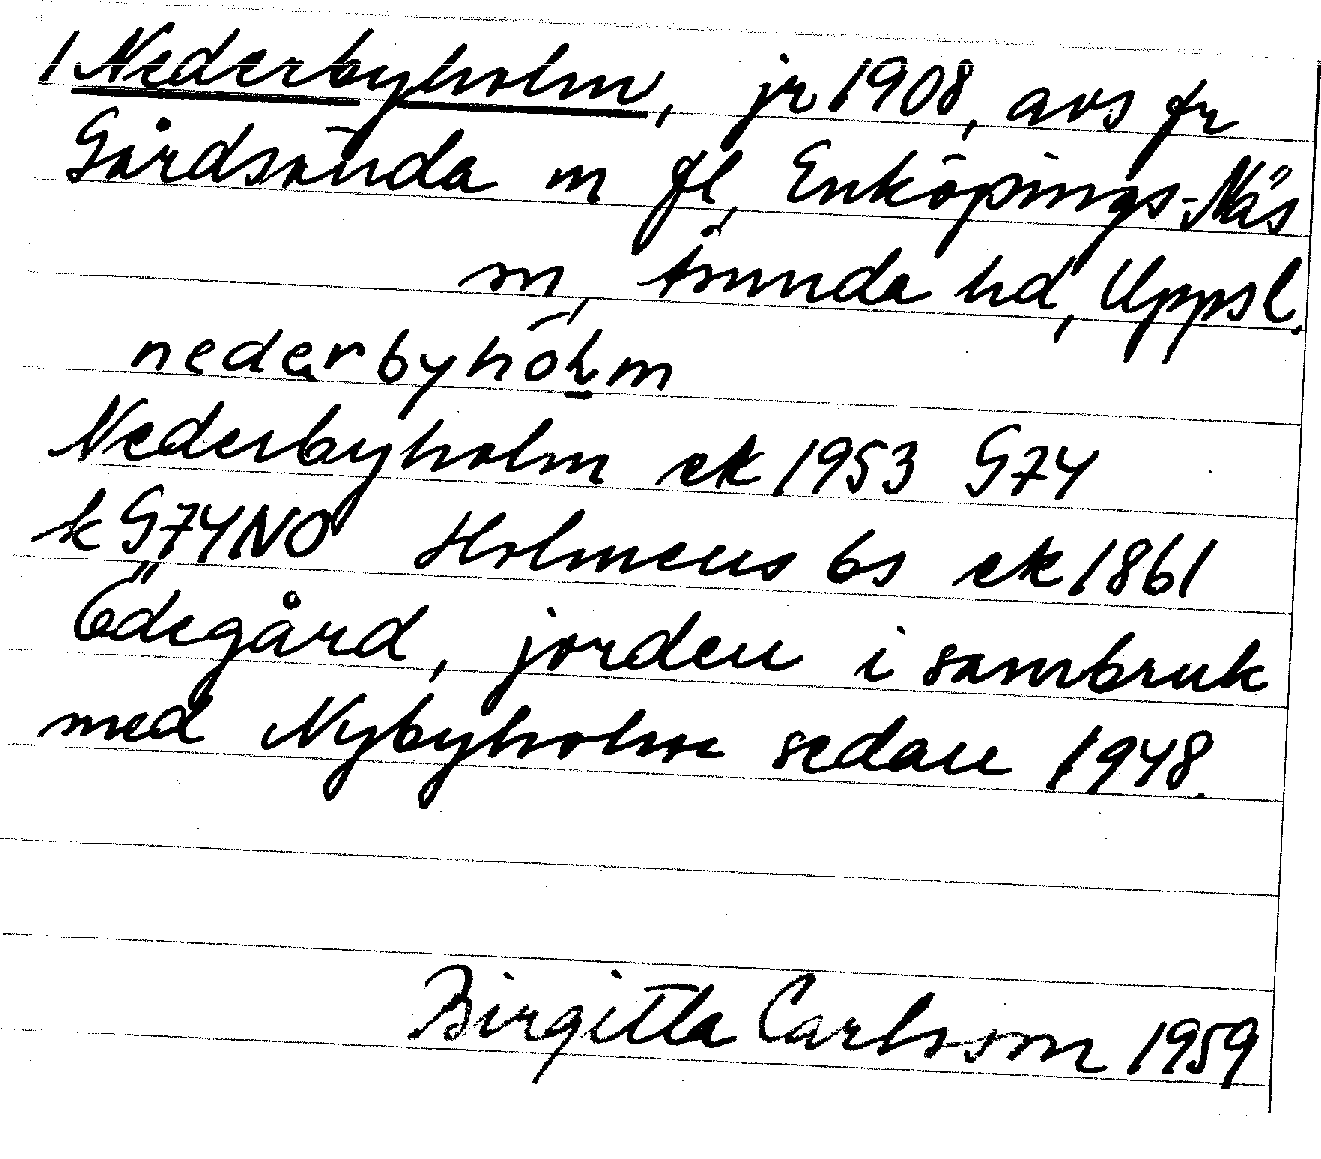 1 Nederbyholm, jr 1908, avs fr
Gårdsända m fl, Enköpings-Näs
sn, Åsunda hd, Uppsl.
nederbyhòlm
Nederbyholm ek 1953 G74
k G74NO Holmens bs ek 1861
Ödegård, jorden i sambruk
med Nybyholm sedan 1948.
Birgitta Carlsson 1959